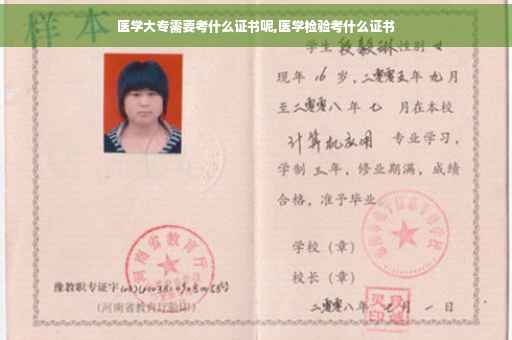 医学大专需要考什么证书呢,医学检验考什么证书
样本
学生段毅琳性别女
现年16岁,二零零五年九月
至二零零八年七月在本校
计算机应用 专业学习,
学制三年,修业期满,成绩
合格,准予毕业
学校(章)
校长(章)
二零零八年七月一日
河南省教育厅
豫教职专证字
(河南省教育厅验印)